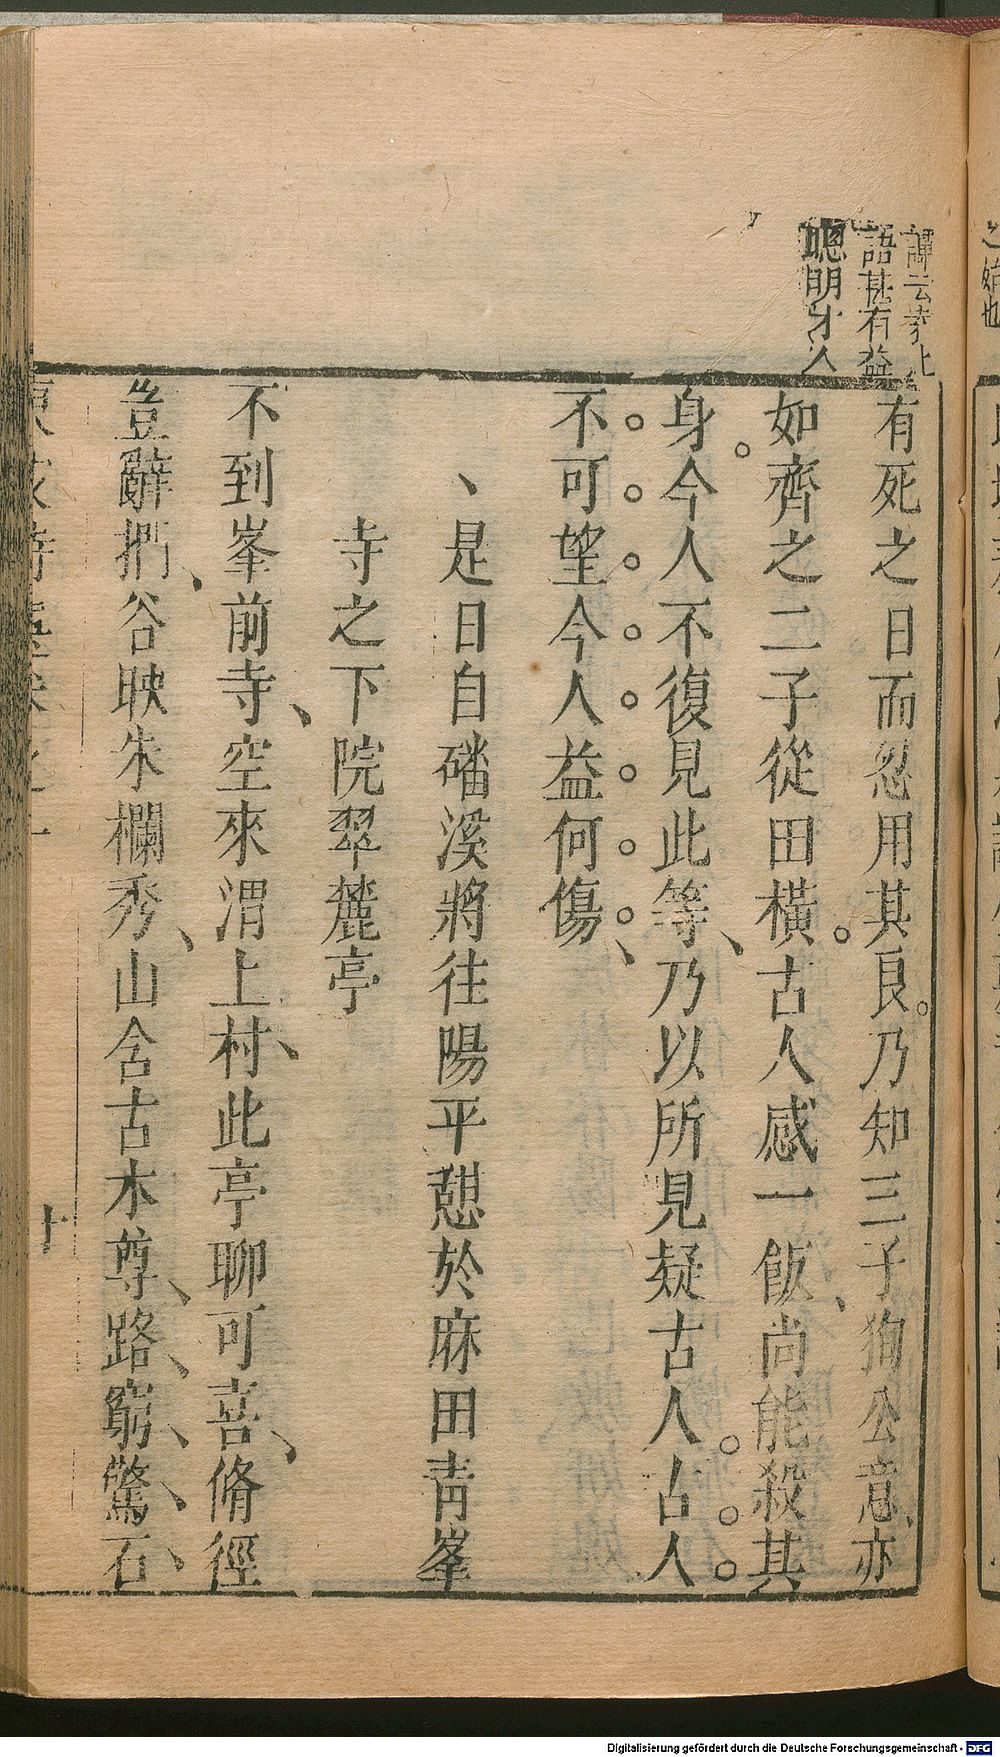 譚云老
語甚有益
聰明才人
有死之日而忍用其良乃知三子狥公意亦
如齊之二子從田橫古人感一飯尚能殺其
身今人不復見此等乃以所見疑古人古人
不可望今人益何傷
是日自磻溪將往陽平憩於麻田青峯
寺之下院翠麓亭
不到峯前寺空來渭上村此亭聊可喜脩徑
豈辭捫谷映朱欄秀山含古木尊路窮驚石
十
Digitalisierung gefördert durch die Deutsche Forschungsgemeinschaft - DFG